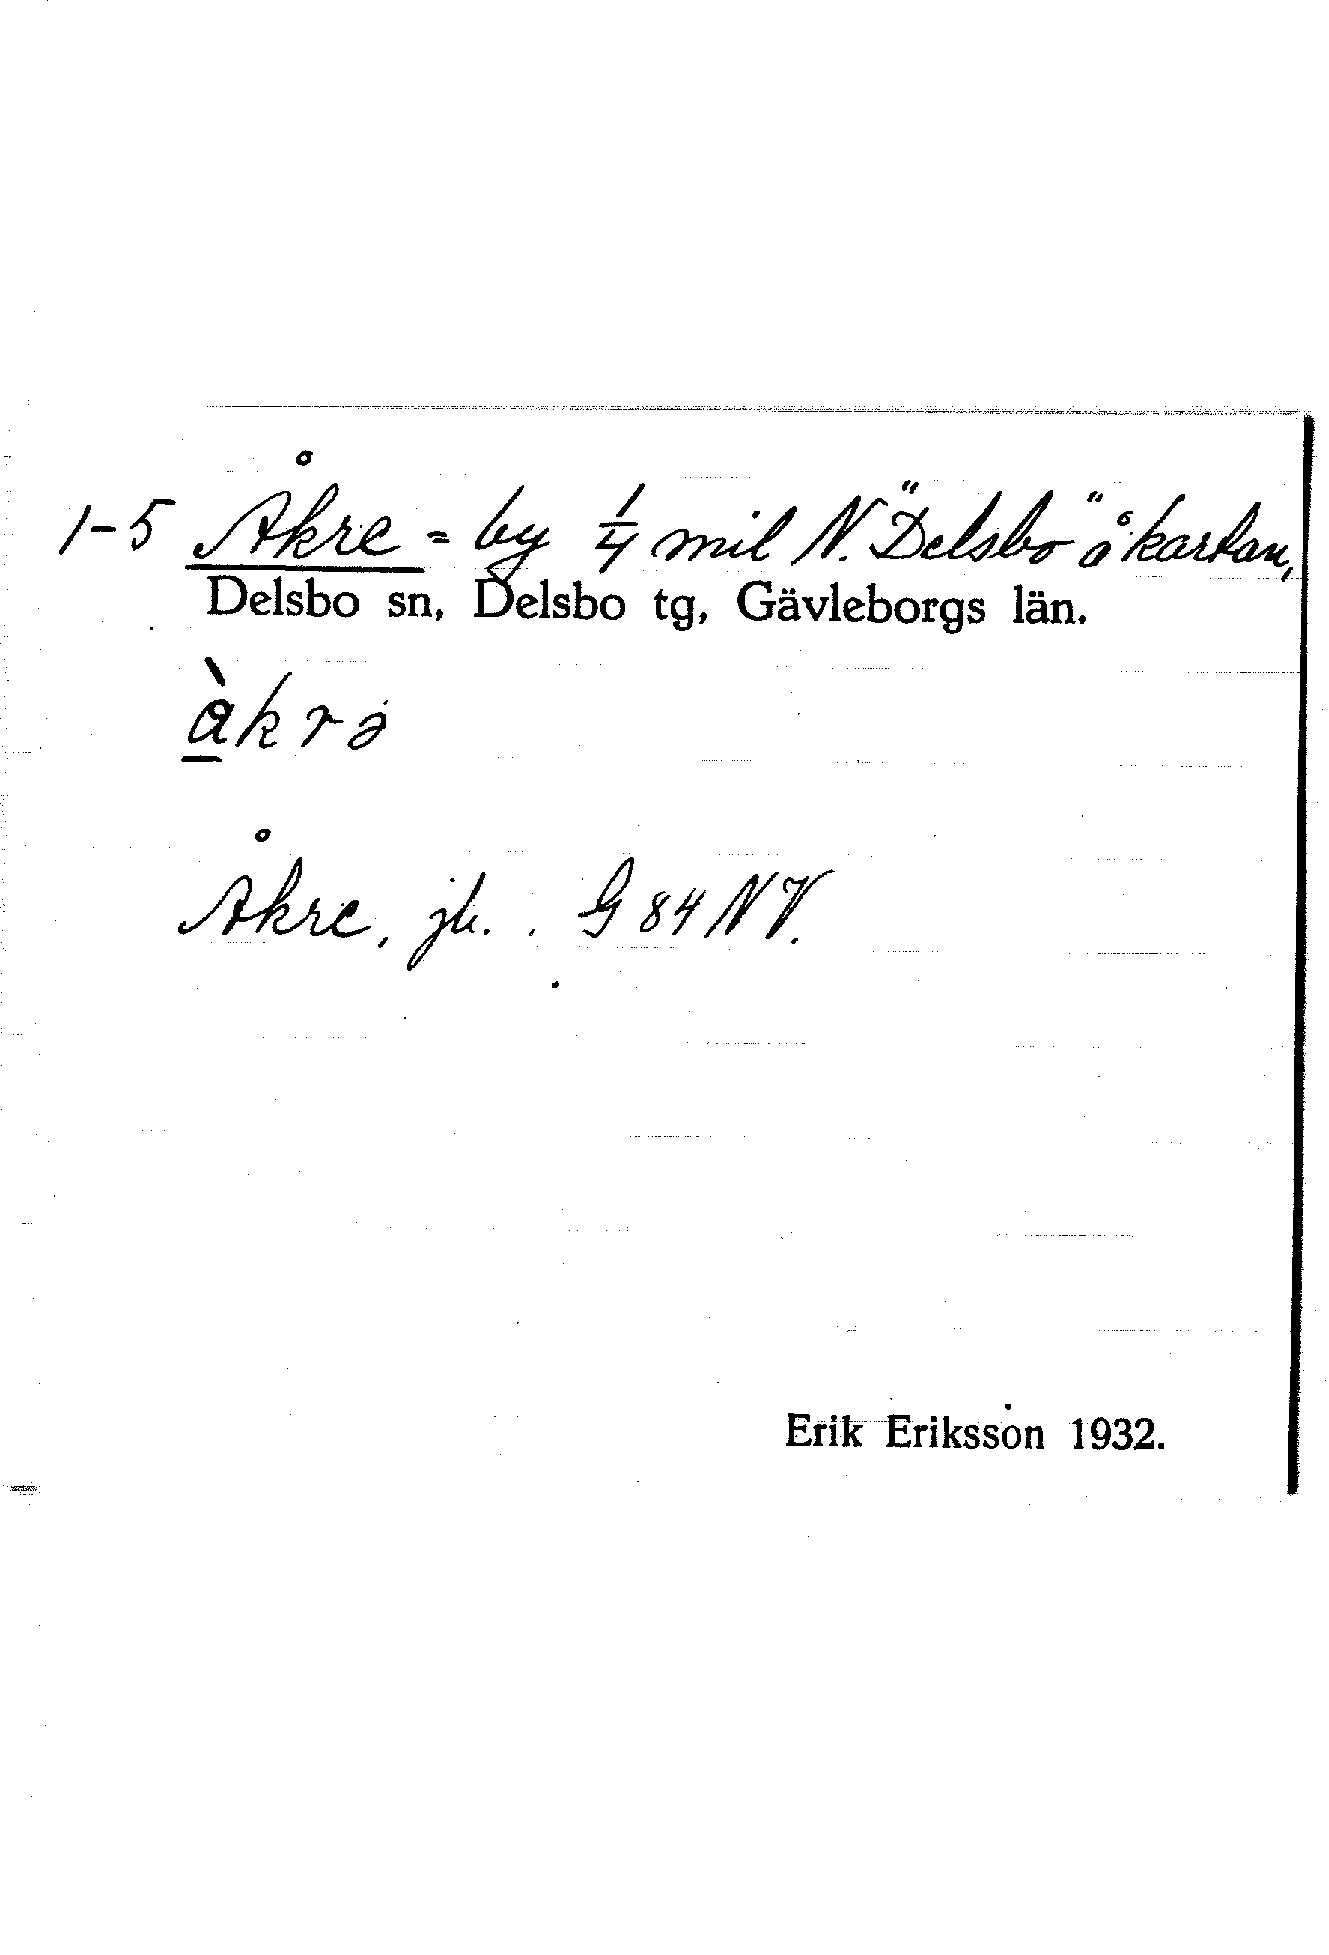 1-5 Åkre = by 1/4 mil N. "Delsbo" å kartan,
Delsbo sn, Delsbo tg, Gävleborgs län.
àkrə
Åkre, jb. G 84 NV.
Erik Eriksson 1932.